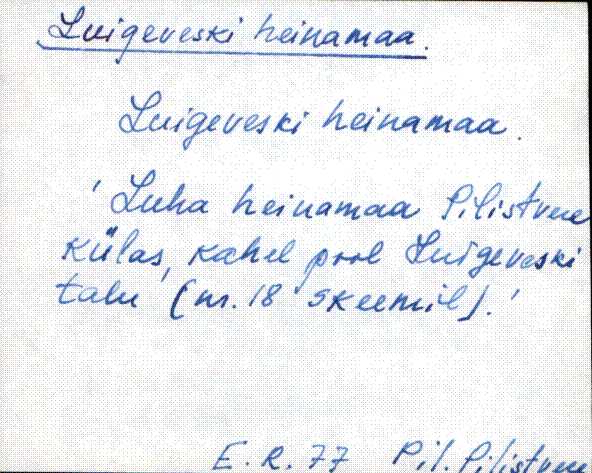 Luigeveski heinamaa.
Luigeveski heinamaa.
'Luha heinamaa Pilistvere
külas, kahel pool Luigeveski
talu (nr. 18 skeemil).'
E. R. 77 Pil. Pilistvere